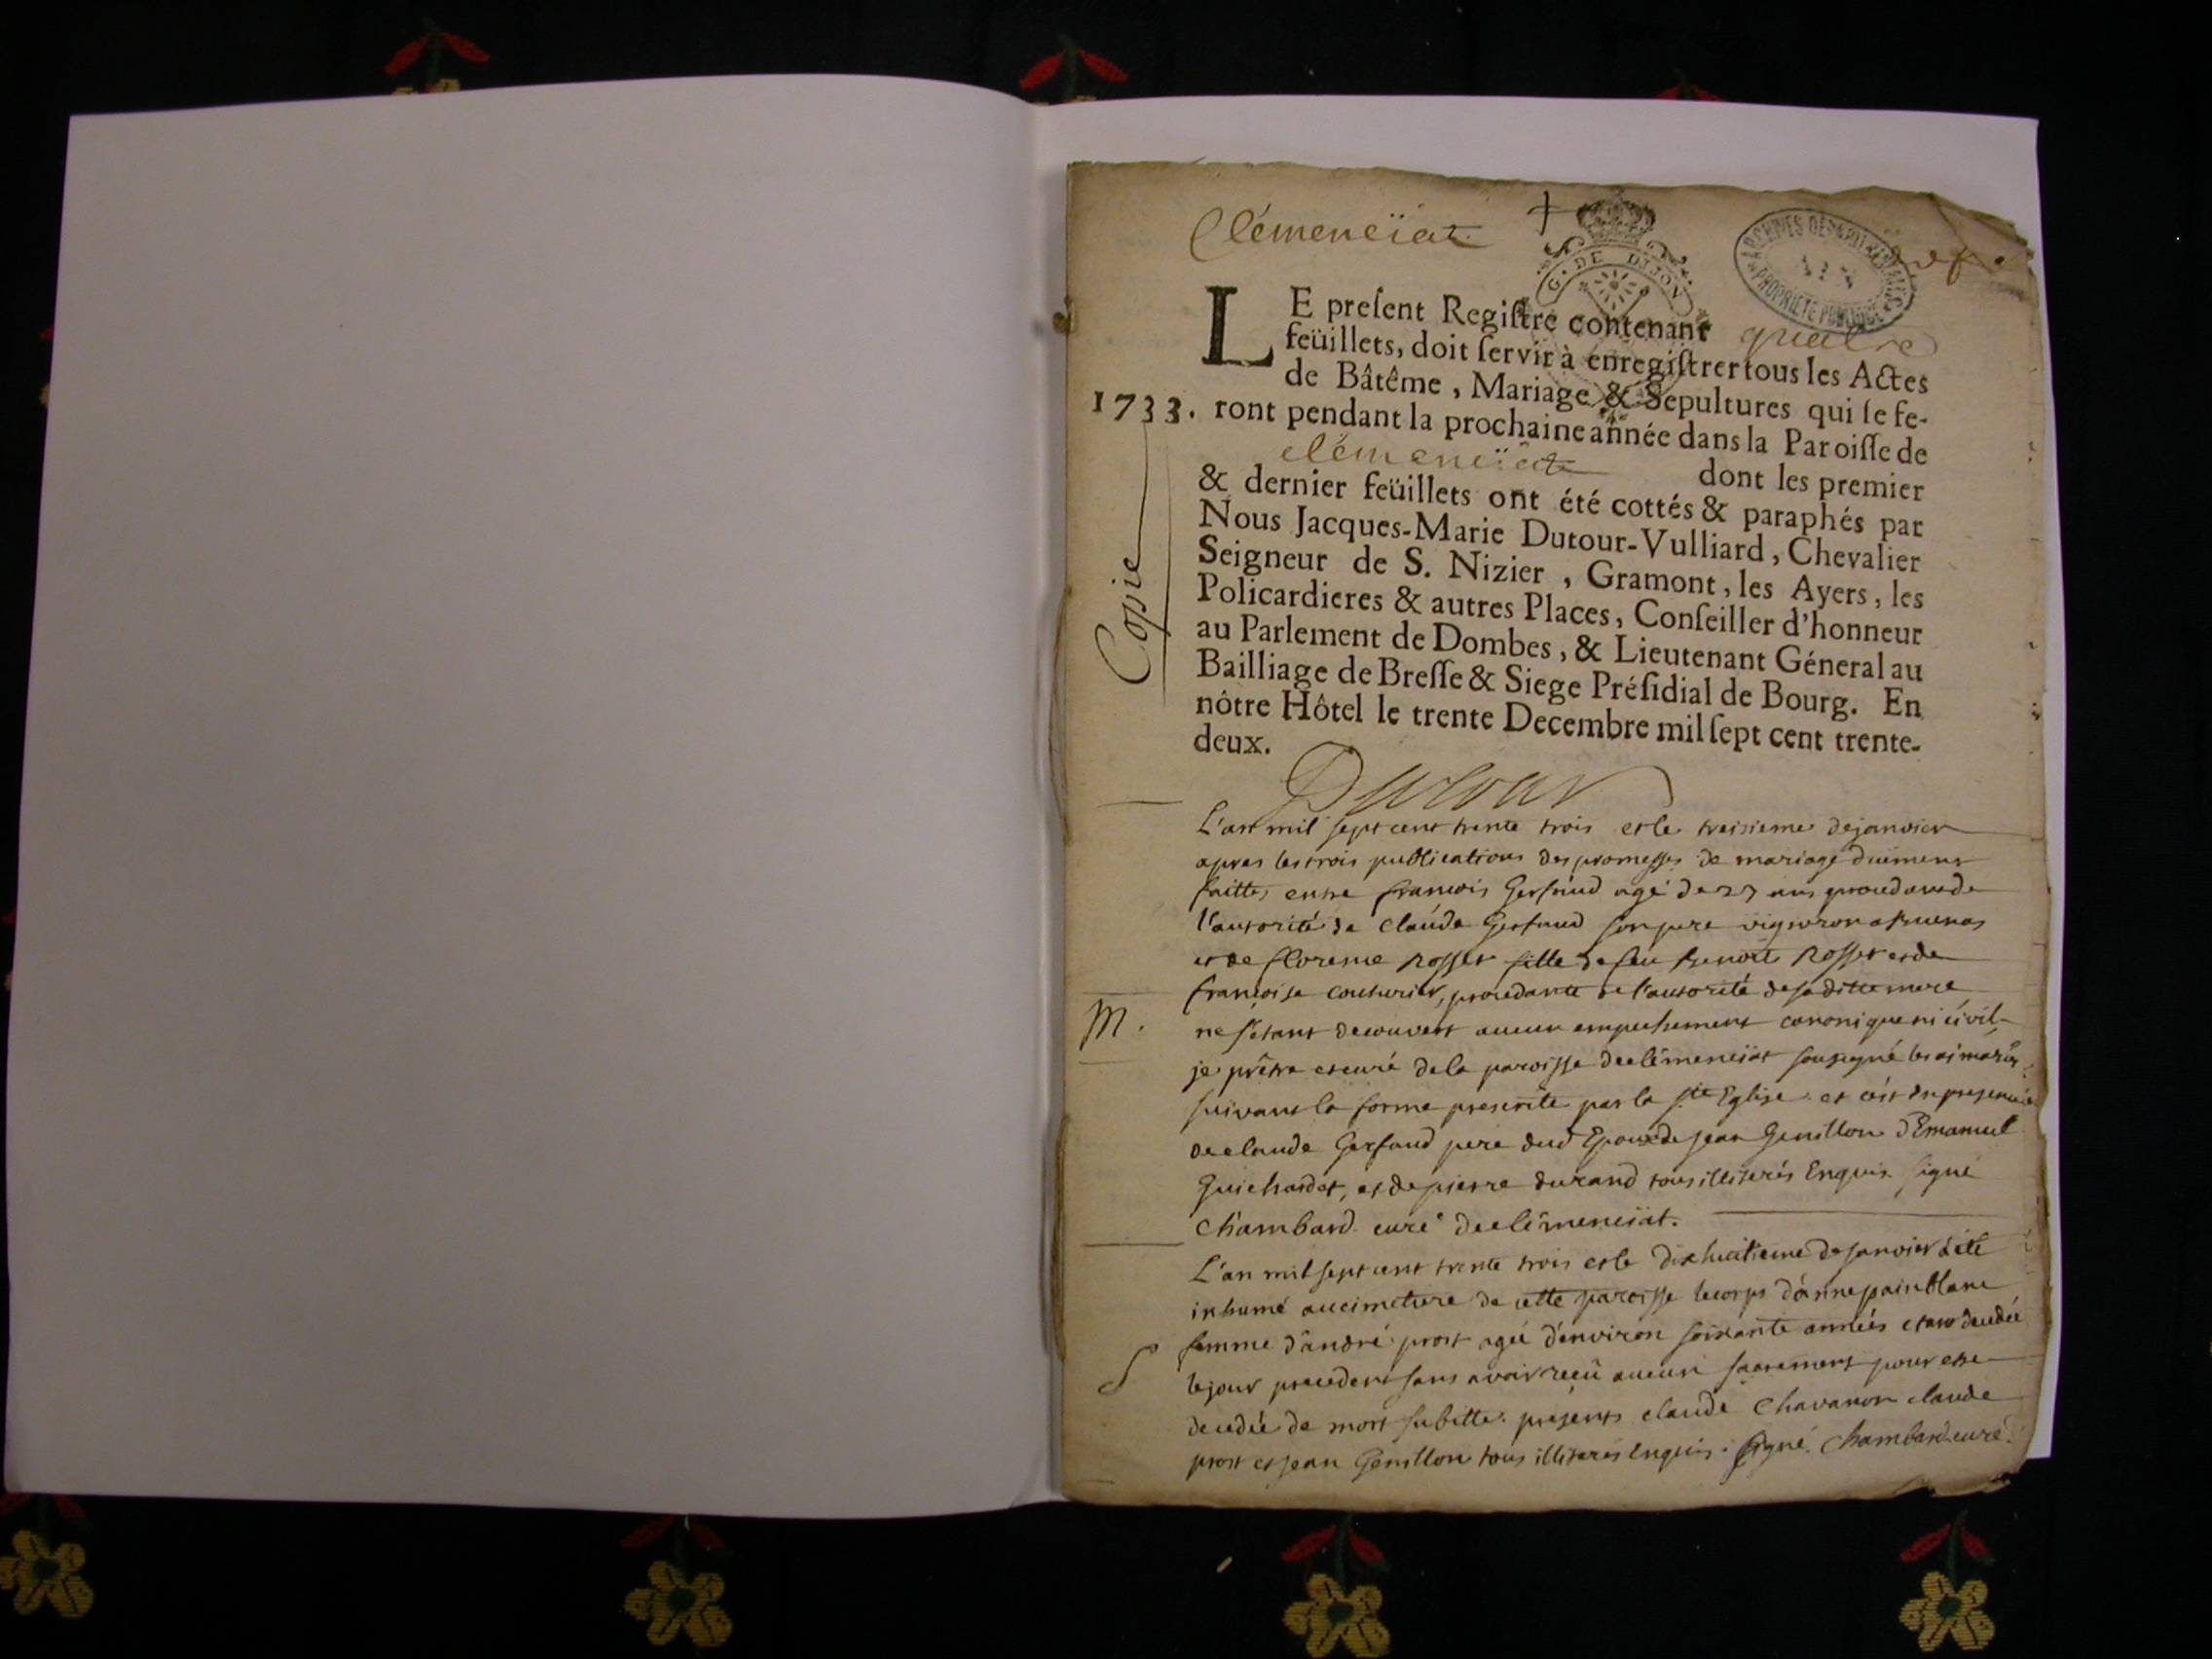 Clémenciat
G. DE DIJON
ARCHIVES DÉPARTEMENTALES
PROPRIÉTÉ PUBLIQUE
LE preſent Regiſtre contenant quatre
feüillets, doit ſervir à enregiſtrer tous les Actes
de Bâtême, Mariage & Sepultures qui ſe fe-
1733. ront pendant la prochaine année dans la Paroiſſe de
clémenciat dont les premier
& dernier feüillets ont été cottés & paraphés par
Nous Jacques-Marie Dutour-Vulliard, Chevalier
Seigneur de S. Nizier, Gramont, les Ayers, les
Policardieres & autres Places, Conſeiller d'honneur
au Parlement de Dombes, & Lieutenant Géneral au
Bailliage de Breſſe & Siege Préſidial de Bourg. En
nôtre Hôtel le trente Decembre mil ſept cent trente-
deux.
Copie
Dutour
L'an mil sept cent trente trois et le treisieme de janvier
apres les trois publications des promesses de mariage duement
faittes entre francois Gerfaud agé de 27 ans procedant de
l'autorité de claude Gerfaud son pere vigneron a
et de florence Rosset fille de feu benoit Rosset et de
françoise couturier, procedante de l'autorité de sa ditte mere
M. ne s'étant decouvert aucun empechement canonique ni civil
je prêtre et curé de la paroisse de clémenciat sousigné les ai mariés
suivant la forme prescrite par la ste Eglise et c'ést en presence
de claude Gerfaud pere dud Epoux de jean Genillon d'Emanuel
Guichardet, et de pierre durand tous illiterés Enquis signé
Chambard curé de clémenciat.
L'an mil sept cent trente trois et le dixhuitieme de janvier a été
inhumé au cimetiere de cette paroisse le corps d'anne painblanc
femme d'andré prost agée d'environ soixante années etant decedée
S le jour precedent sans avoir reçû aucun sacrement pour etre
decedée de mort subitte. présents claude Chavanon claude
prost et jean Genillon tous illiterés enquis. signé Chambard curé.